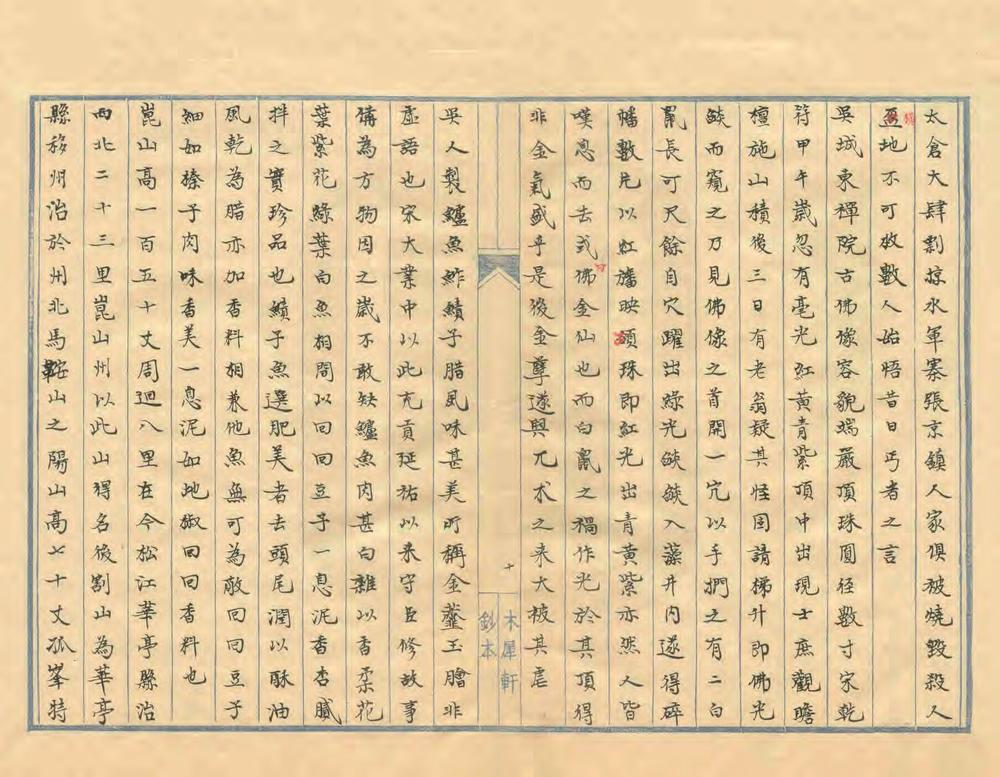 太倉大肆剽掠水軍寨張京鎮人家俱被燒毀殺人
盈地不可枚數人始悟昔日丐者之言
吳城東禪院古佛像容貌端嚴頂珠圓徑數寸宋乾
符甲午歲忽有毫光紅黃青紫頂中出現士庶觀瞻
檀施山積後三日有老翁疑其怪因請梯升即佛光
燄而窺之乃見佛像之首開一穴以手捫之有二白
鼠長可尺餘自穴躍出綠光燄燄入藻井內遂得碎
幡數片以紅旛映頭珠即紅光出青黃紫亦然人皆
嘆息而去或佛金仙也而白鼠之禍作光於其頂得
非金氣盛乎是後金孽遂興兀朮之來大被其虐
吳人製鱸魚鮓鱭子腊風味甚美所稱金虀玉膾非
虛語也宋大業中以此充貢延祐以來守臣修故事
備為方物因之歲不敢缺鱸魚肉甚白雜以香柔花
葉紫花綠葉白魚相間以回回豆子一息泥香杏膩
拌之實珍品也鱭子魚選肥美者去頭尾潤以酥油
風乾為腊亦加香料相兼他魚無可為敵回回豆子
細如榛子肉味香美一息泥如地椒回回香料也
崑山高一百五十丈周迴八里在今松江華亭縣治
西北二十三里崑山州以此山得名後割山為華亭
縣移州治於州北馬鞍山之陽山高七十丈孤峯特
十
木犀軒
鈔本